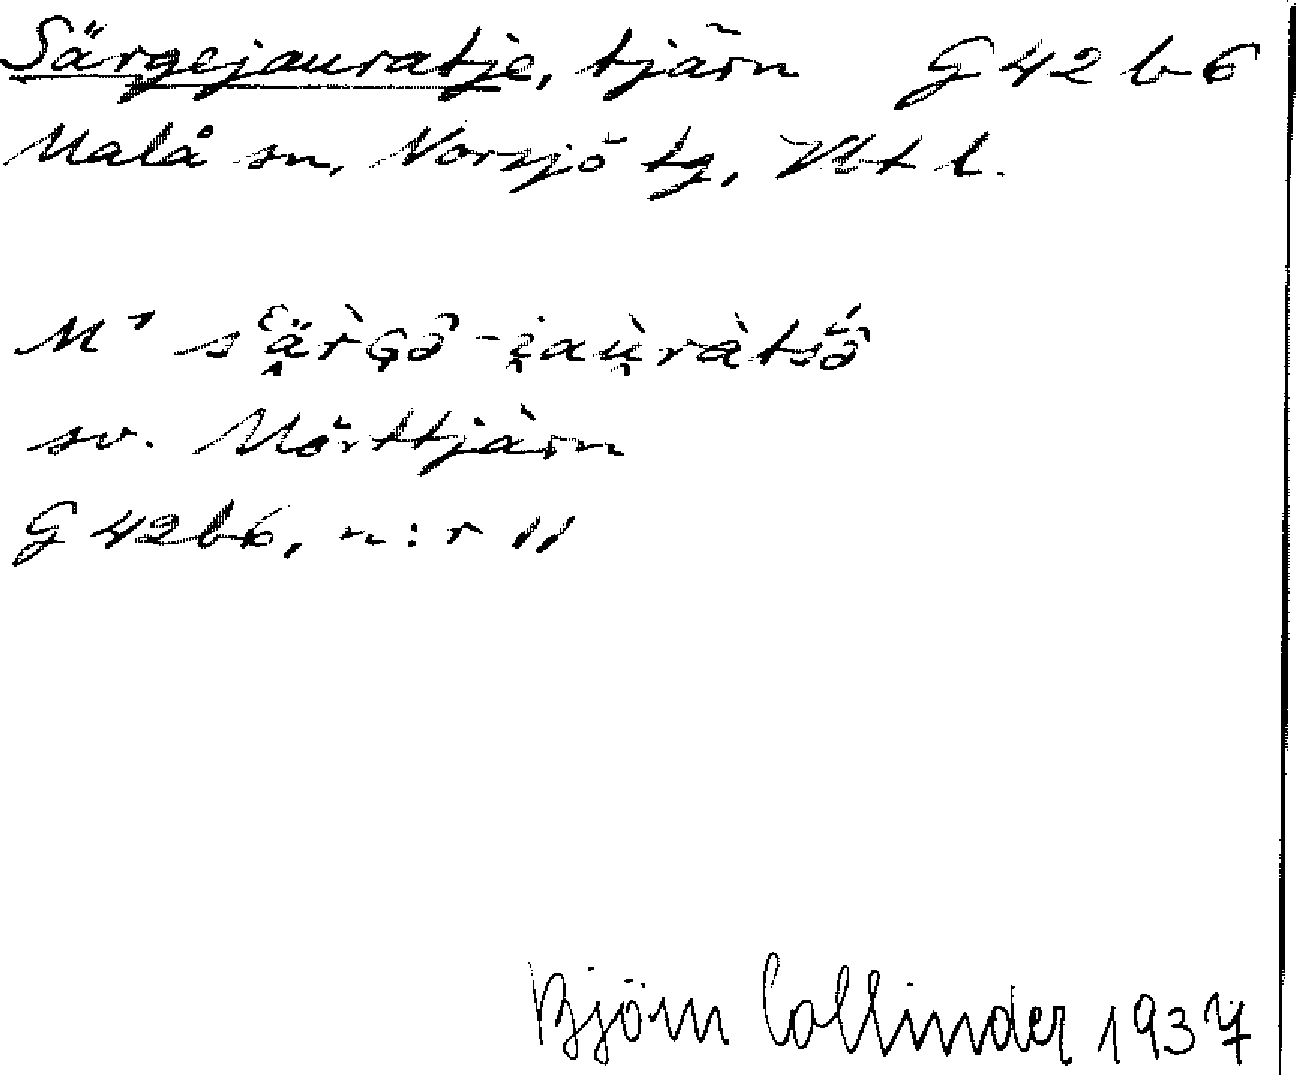 Särgejauratje, tjärn G 42 b 6
Malå sn, Norsjö tg, Vbt l.
M
sv. Mörttjärn
G 42 b 6, n:r 11
Björn Collinder 1937